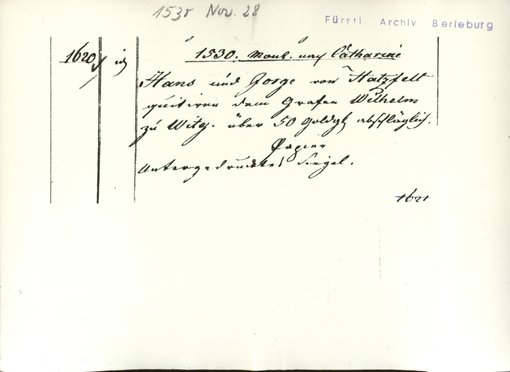 1530 Nov. 28
Fürstl. Archiv Berleburg
1620
1530. Mont. nach Catharine
Hans und Gorge von Hatzfelt
quitiren dem Grafen Wilhelm
zu Witg. über 50 Goldgl. abschläglich.
Papier
Untergedrucktes Siegel.
1621